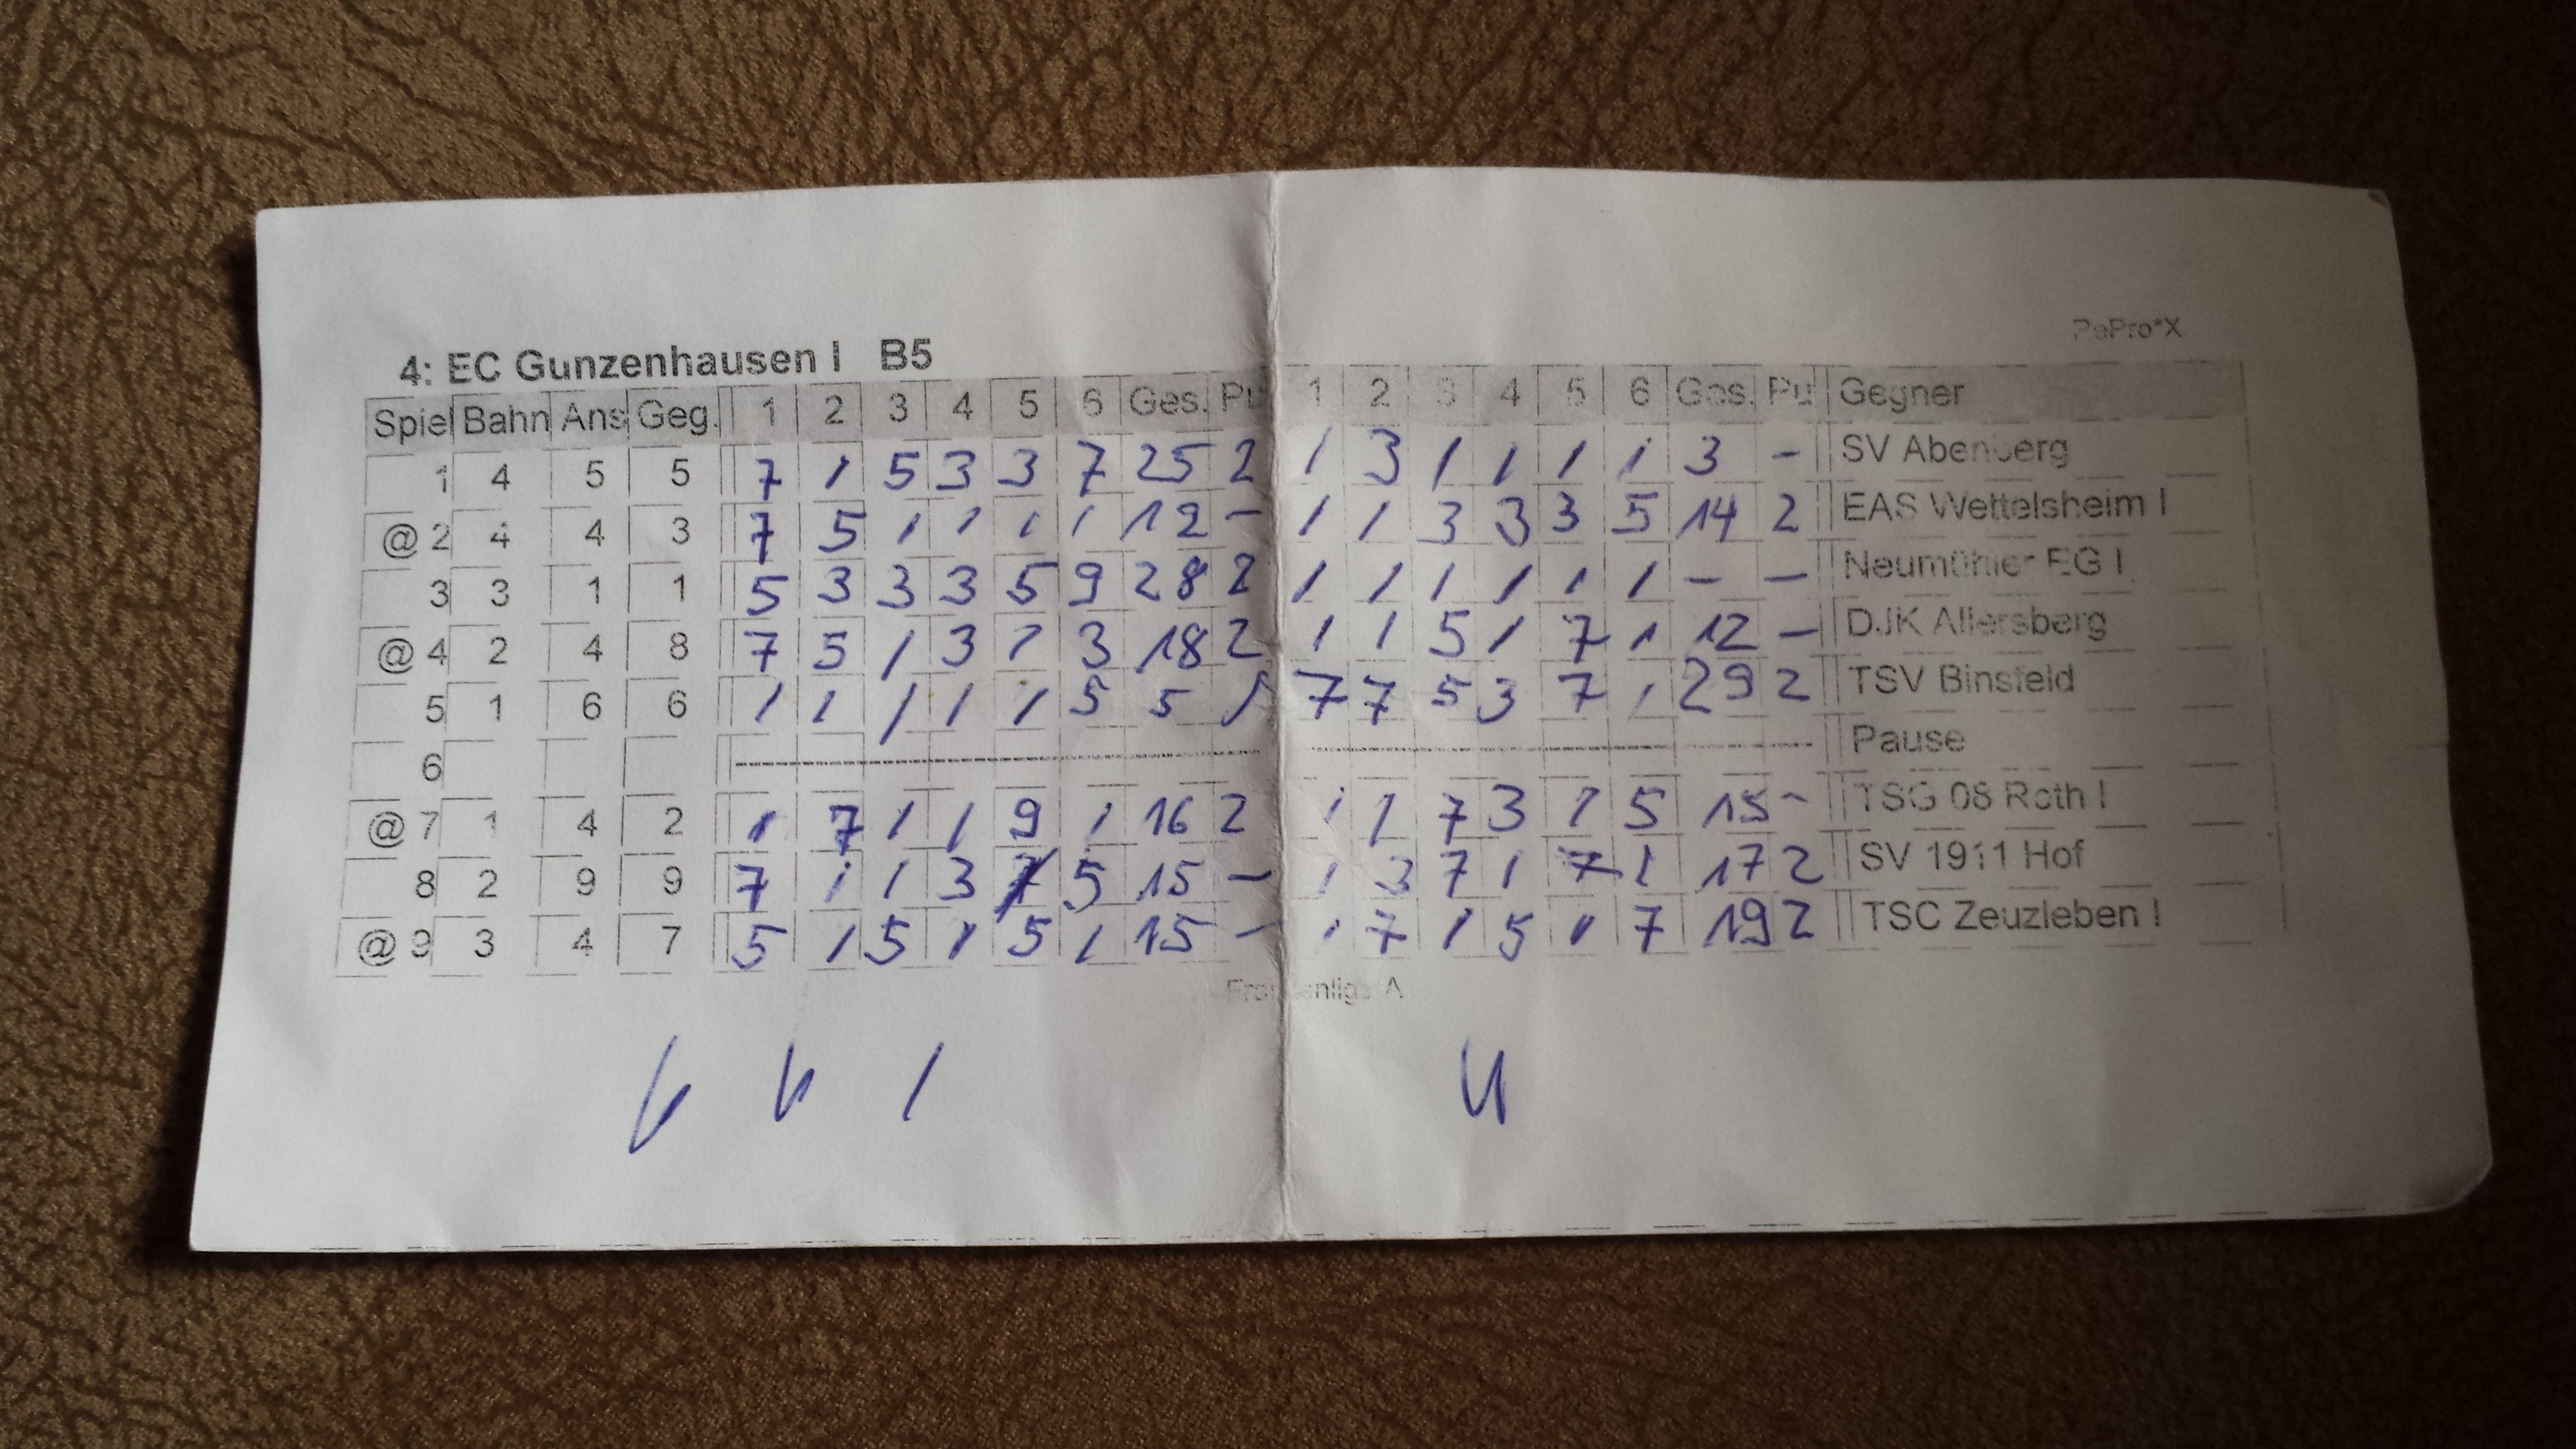 PaPro*X
4: EC Gunzenhausen I B5
Spiel Bahn Ans Geg. 1 2 3 4 5 6 Ges. Pu 1 2 3 4 5 6 Ges. Pu Gegner
1 4 5 5 7 / 5 3 3 7 25 2 / 3 / / / / 3 - SV Abenberg
@ 2 4 4 3 7 5 / / / / 12 - / / 3 3 3 5 14 2 EAS Wettelsheim I
3 3 1 1 5 3 3 3 5 9 28 2 / / / / / / - - Neumühler EG I
@ 4 2 4 8 7 5 / 3 / 3 18 2 / / 5 / 7 / 12 - DJK Allersberg
5 1 6 6 / / / / / 5 5 / 7 7 5 3 7 / 29 2 TSV Binsfeld
6 Pause
@ 7 1 4 2 / 7 / / 9 / 16 2 / / 7 3 / 5 15 - TSG 08 Roth I
8 2 9 9 7 / / 3 / 5 15 - / 3 7 / 7 / 17 2 SV 1911 Hof
@ 9 3 4 7 5 / 5 / 5 / 15 - / 7 / 5 / 7 19 2 TSC Zeuzleben I
Frankenliga A